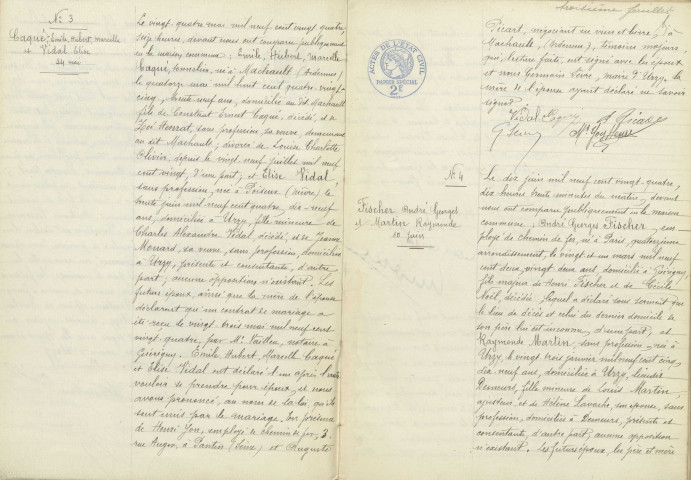 N° 3
Caqué, Emile, Hubert, Marcelle
et Vidal Elise
24 mai
Le vingt quatre mai mil neuf cent vingt quatre,
heures, devant nous ont comparu publiquement
en la maison commune : Emile, Hubert, Marcelle
Caqué, né à Machault (Ardennes)
le quatorze mai mil huit cent quatre vingt
cinq, trente neuf ans, domicilié au dit Machault
fils de Constant Ernest Caqué, décédé, et de
Zoé sans profession, sa veuve, demeurant
au dit Machault ; divorcé de Louise Charlotte
Olivier, depuis le vingt neuf juillet mil neuf
cent vingt, d'une part ; et Elise Vidal
sans profession, née à (Nièvre) le
trente juin mil neuf cent quatre, dix-neuf
ans, domiciliée à Urzy, fille mineure de
Charles Alexandre Vidal, décédé, et de Jeanne
sa veuve, sans profession, domiciliée
à Urzy, présente et consentante, d'autre
part ; aucune opposition n'existant. Les
futurs époux, ainsi que la mère de l'épouse
déclarent qu'un contrat de mariage a
été reçu le vingt trois mai mil neuf cent
vingt quatre, par Me notaire à
Guérigny. Emile, Hubert, Marcelle Caqué
et Elise Vidal ont déclaré l'un après l'autre
vouloir se prendre pour époux, et nous
avons prononcé, au nom de la loi, qu'ils
sont unis par le mariage. En présence
de Henri employé de chemin de fer, 3
rue à Pantin (Seine) et Auguste
troisième feuillet
ACTES DE L'ETAT CIVIL
PAPIER SPECIAL
2F
Picart, négociant en vins et à
Machault, (Ardennes), témoins majeurs,
qui, lecture faite, ont signé avec les époux
et nous Germain maire d'Urzy, la
mère de l'épouse ayant déclaré ne savoir
signer.
Vidal
N° 4
Fischer André Georges
et Martin Raymonde
10 juin
Le dix juin mil neuf cent vingt quatre,
dix heures trente minutes du matin, devant
nous ont comparu publiquement en la maison
commune : André Georges Fischer, em-
ployé de chemin de fer, né à Paris, quatorzième
arrondissement, le vingt et un mars mil neuf
cent deux, vingt deux ans, domicilié à Guérigny,
fils majeur de Henri Fischer et de Cécile
Noël, décédée, lequel a déclaré sous serment que
le lieu de décès et celui du dernier domicile de
son père lui est inconnu, d'une part, et
Raymonde Martin, sans profession, née à
Urzy, le vingt trois janvier mil neuf cent cinq,
dix-neuf ans, domiciliée à Urzy, lieudit
Demeurs, fille mineure de Louis Martin,
ajusteur, et de Hélène son épouse, sans
profession, domiciliés à Demeurs, présents et
consentants, d'autre part, aucune opposition
n'existant. Les futurs époux, les père et mère